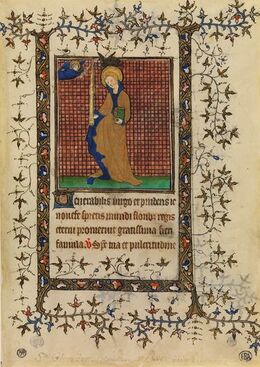 Venerabilis virgo et prudens ie
novefe spretis mundi regis
eterni promeruit gratissima fieri
famula et pulcritudine